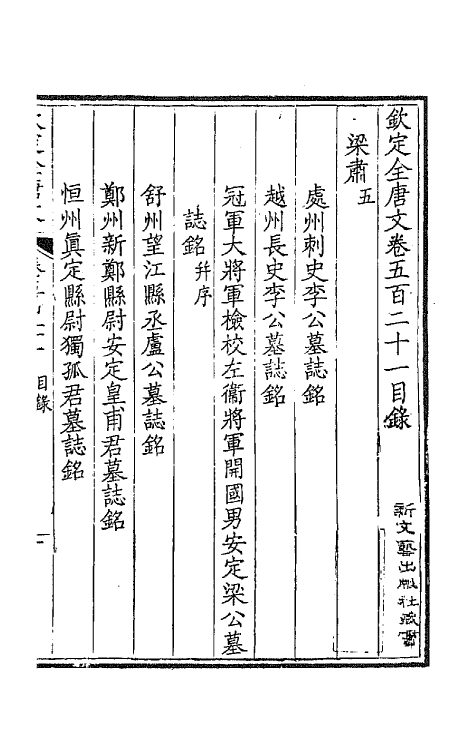 欽定全唐文卷五百二十一目錄
梁肅五
處州刺史李公墓誌銘
越州長史李公墓誌銘
冠軍大將軍檢校左衞將軍開國男安定梁公墓
誌銘并序
舒州望江縣丞盧公墓誌銘
鄭州新鄭縣尉安定皇甫君墓誌銘
恒州眞定縣尉獨孤君墓誌銘
目錄
一
新文藝出版社藏書